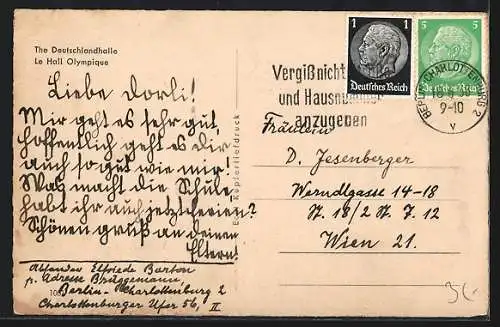 The Deutschlandhalle
Le Hall Olympique
1 1
Deutsches Reich
5 5
Deutsches Reich
Vergißnicht
und Hausnummer
anzugeben
BERLIN-CHARLOTTENBURG 2
9-10
v
Kupfertiefdruck
Liebe Dorli!
Mir geht es sehr gut,
hoffentlich geht es dir
auch so gut wie mir!
Was macht die Schule
habt ihr auch jetzt Ferien?
Schönen gruß an deinen
Eltern!
Absender Elfriede Barton
p. Adresse Brüggemann,
Berlin-Charlottenburg 2
Charlottenburger Ufer 56, II
Fräulein
D. Jesenberger
Werndlgasse 14-18
St. 18/2 St. 7. 12
Wien 21.